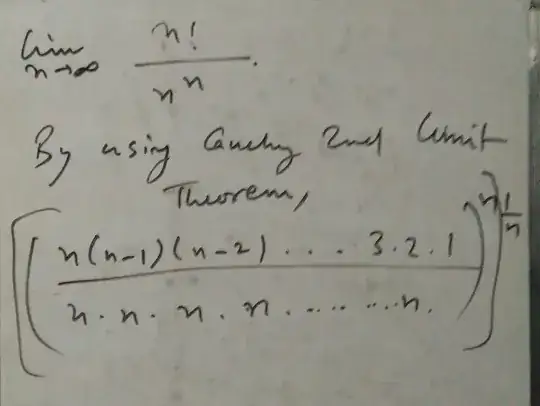 lim n→∞ n! / n^n.
By using Cauchy 2nd limit
Theorem,
[((n(n-1)(n-2) . . . . 3.2.1) / (n. n. n. n. ........n.))^n]^(1/n)